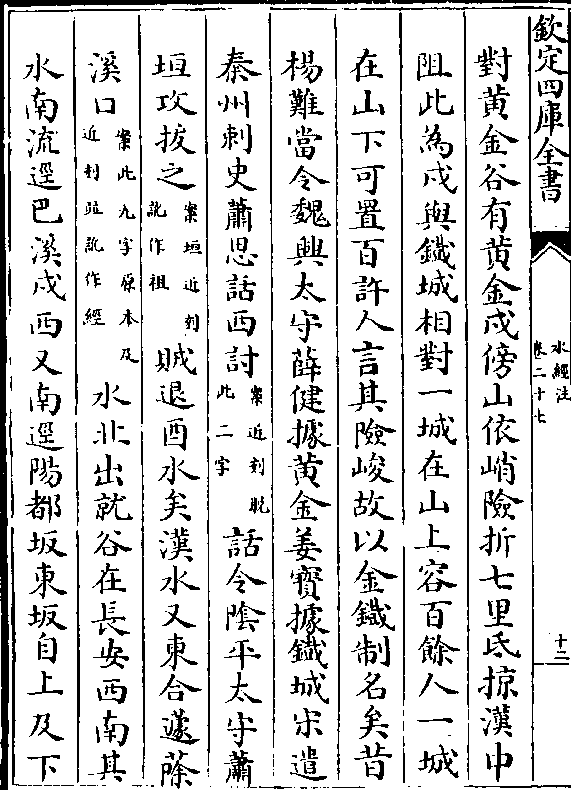 欽定四庫全書
水經注
卷二十七
十二
對黃金谷有黃金戍傍山依峭險折七里氐掠漢中
阻此為戍與鐵城相對一城在山上容百餘人一城
在山下可置百許人言其險峻故以金鐵制名矣昔
楊難當令魏興太守薛健據黃金姜寶據鐵城宋遣
秦州刺史蕭思話西討案近刻脫此二字話令陰平太守蕭
垣攻拔之案垣近刻訛作祖賊退酉水矣漢水又東合蘧蒢
溪口案此九字原本及近刻並訛作經水北出就谷在長安西南其
水南流逕巴溪戍西又南逕陽都坂東坂自上及下